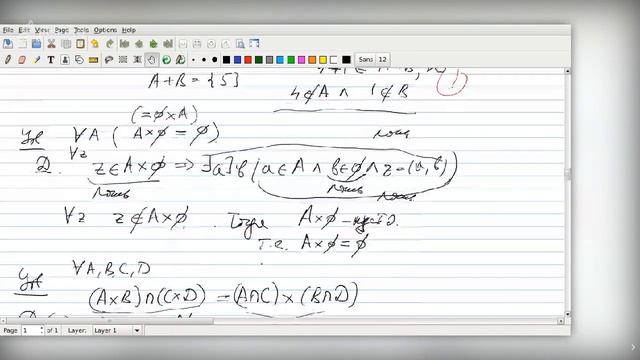 File Edit View Page Tools Options Help
Sans 12
A+B = {5}
4∉A ∧ 1∉B
(=∅×A)
ложь
Утв ∀A (A×∅ = ∅)
D. ∀z z∈A×∅ ⇒ ∃a∃b (a∈A ∧ b∈∅ ∧ z=(a,b))
ложь ложь ложь
∀z z∉A×∅. Тогда A×∅ –
т.е. A×∅=∅
Утв ∀A,B,C,D
(A×B)∩(C×D) = (A∩C)×(B∩D)
Page 1 of 1 Layer: Layer 1